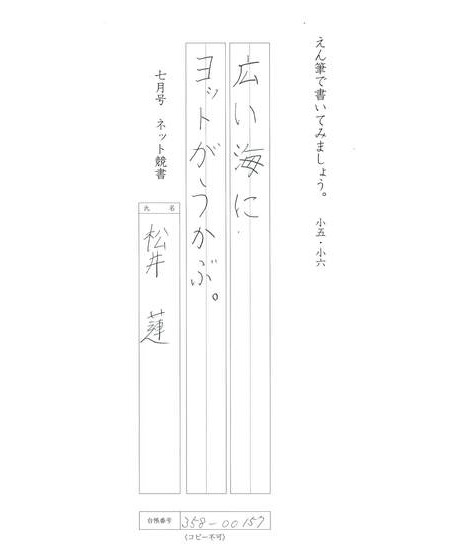 えん筆で書いてみましょう。 小五・小六
広い海に
ヨットがうかぶ。
七月号 ネット競書
氏 名
松井 蓮
台帳番号 358-00157
(コピー不可)